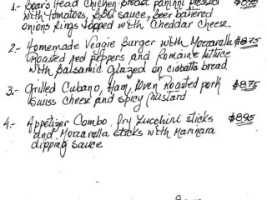 1.- Boar's Head Chicken Breast panini pressed
with tomatoes, BBQ sauce, Beer battered
onions Rings topped with Cheddar Cheese.
2.- Homemade Veggie Burger with Mozzarella $8.75
Roasted Red peppers and Romaine lettuce
with Balsamic Glazed on ciabatta bread
3.- Grilled Cubano, Ham, Oven Roasted pork $8.75
Swiss Cheese and Spicy Mustard
4.- Appetizer Combo, fry Zucchini sticks $8.95
and Mozzarella sticks with Marinara
dipping sauce